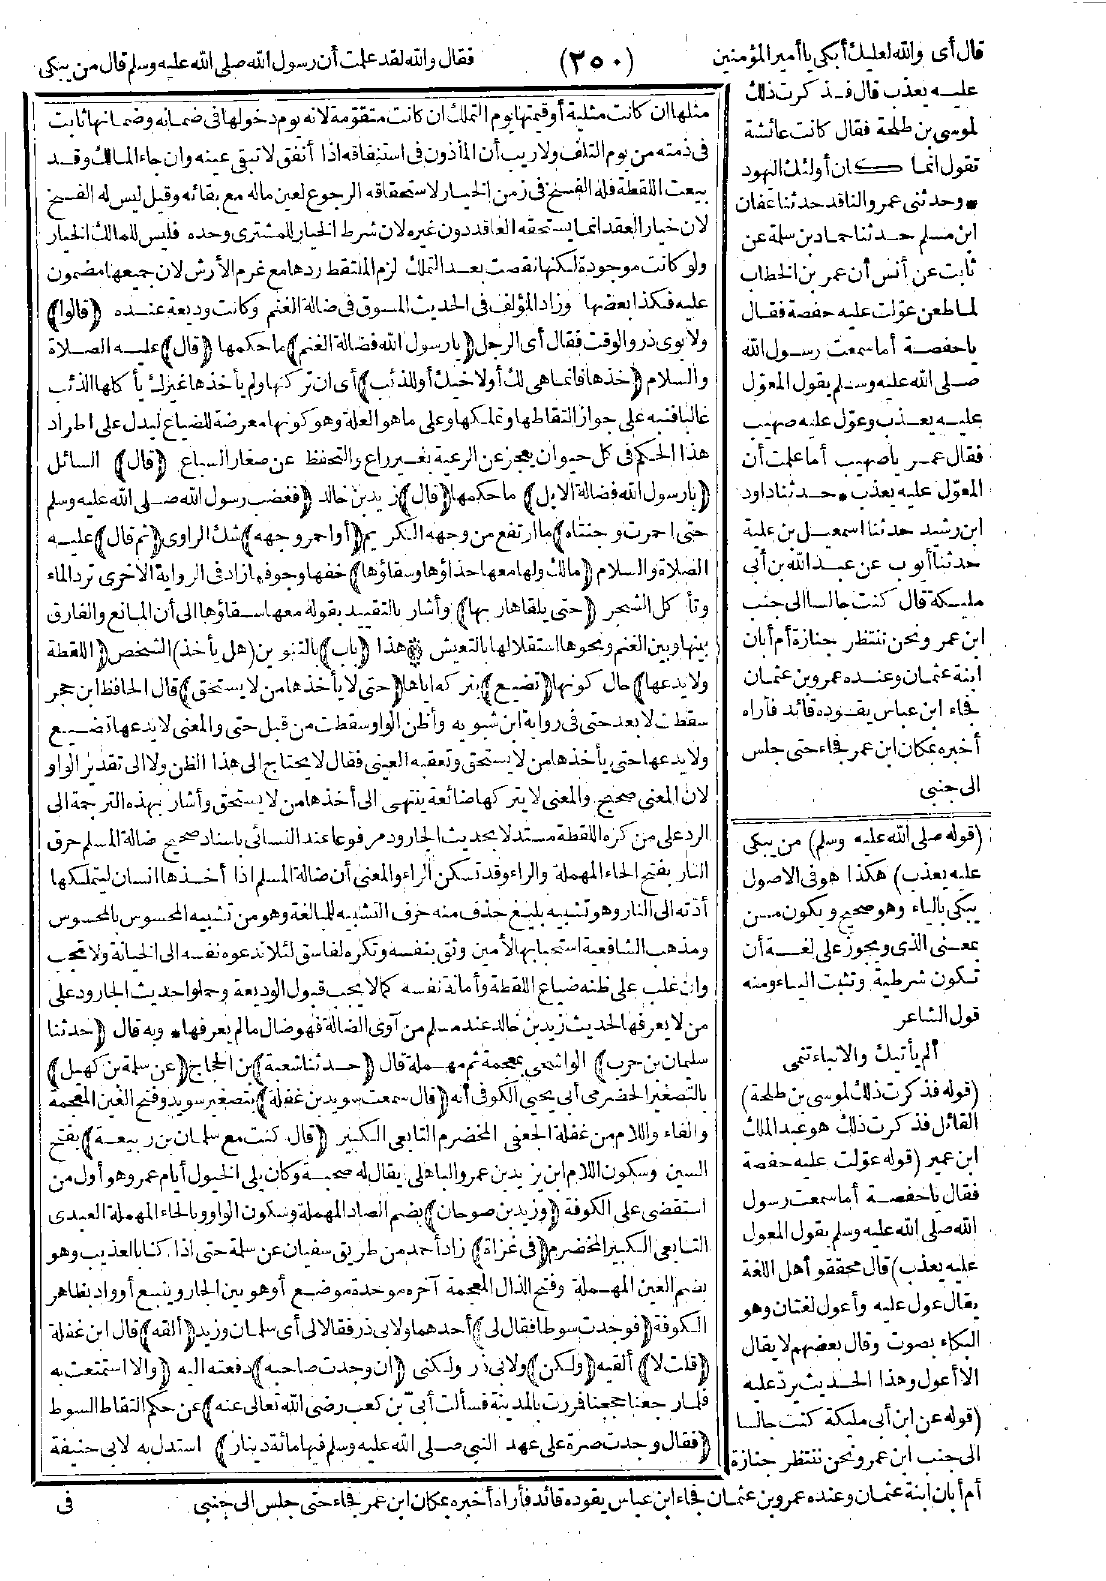 قال أى والله لعليك أبكى يا أمير المؤمنين
(٢٥٠)
فقال والله لقد علمت أن رسول الله صلى الله عليه وسلم قال من يبكى
عليه يعذب قال فذكرت ذلك
لموسى بن طلحة فقال كانت عائشة
تقول انما كان أولئك اليهود
* وحدثنى عمرو الناقد حدثنا عفان
ابن مسلم حدثنا حماد بن سلمة عن
ثابت عن أنس أن عمر بن الخطاب
لما طعن عولت عليه حفصة فقال
يا حفصة أما سمعت رسول الله
صلى الله عليه وسلم يقول المعول
عليه يعذب وعول عليه صهيب
فقال عمر يا صهيب أما علمت أن
المعول عليه يعذب * حدثنا داود
ابن رشيد حدثنا اسمعيل بن علية
حدثنا أيوب عن عبد الله بن أبى
مليكة قال كنت جالسا الى جنب
ابن عمر ونحن ننتظر جنازة أم أبان
ابنة عثمان وعنده عمرو بن عثمان
فجاء ابن عباس يقوده قائد فأراه
أخبره بمكان ابن عمر فجاء حتى جلس
الى جنبى
(قوله صلى الله عليه وسلم) من يبكى
عليه يعذب) هكذا هو فى الاصول
يبكى بالياء وهو صحيح ويكون من
بمعنى الذى ويجوز على لغة أن
تكون شرطية وتثبت الياء ومنه
قول الشاعر
ألم يأتيك والانباء تنمى
(قوله فذكرت ذلك لموسى بن طلحة)
القائل فذكرت ذلك هو عبد الملك
ابن عمير (قوله عولت عليه حفصة
فقال يا حفصة أما سمعت رسول
الله صلى الله عليه وسلم يقول المعول
عليه يعذب) قال محققو أهل اللغة
يقال عول عليه وأعول لغتان وهو
البكاء بصوت وقال بعضهم لا يقال
الا أعول وهذا الحديث يرد عليه
(قوله عن ابن أبى مليكة كنت جالسا
الى جنب ابن عمر ونحن ننتظر جنازة
أم أبان ابنة عثمان وعنده عمرو بن عثمان فجاء ابن عباس يقوده قائد فأراه أخبره بمكان ابن عمر فجاء حتى جلس الى جنبى
مثلها ان كانت مثلية أو قيمتها يوم التملك ان كانت متقومة لانه يوم دخولها فى ضمانه وضمانها ثابت
فى ذمته من يوم التلف ولا ريب أن المأذون فى استنفاقه اذا أنفق لا تبقى عينه وان جاء المالك وقد
بيعت اللقطة فله الفسخ فى زمن الخيار لاستحقاقه الرجوع لعين ماله مع بقائه وقيل ليس له الفسخ
لان خيار العقد انما يستحقه العاقد دون غيره لان شرط الخيار للمشترى وحده فليس للمالك الخيار
ولو كانت موجودة لكنها نقصت بعد التملك لزم الملتقط ردها مع غرم الأرش لان جميعها مضمون
عليه فكذا بعضها وزاد المؤلف فى الحديث المسوق فى ضالة الغنم وكانت وديعة عنده (قالوا)
ولابوى ذر والوقت فقال أى الرجل (يا رسول الله فضالة الغنم) ما حكمها (قال) عليه الصلاة
والسلام (خذها فانما هى لك أو لاخيك أو للذئب) أى ان تركتها ولم يأخذها غيرك يأكلها الذئب
غالبا فنبه على جواز التقاطها وتملكها وعلى ما هو العلة وهو كونها معرضة للضياع ليدل على اطراد
هذا الحكم فى كل حيوان يعجز عن الرعية بغير راع والتحفظ عن صغار السباع (قال) السائل
(يا رسول الله فضالة الابل) ما حكمها (قال) زيد بن خالد (فغضب رسول الله صلى الله عليه وسلم
حتى احمرت وجنتاه) ما ارتفع من وجهه الكريم (أو احمر وجهه) شك الراوى (ثم قال) عليه
الصلاة والسلام (مالك ولها معها حذاؤها وسقاؤها) خفها وجوفها زاد فى الرواية الاخرى ترد الماء
وتأكل الشجر (حتى يلقاها ربها) وأشار بالتقييد بقوله معها سقاؤها الى أن المانع والفارق
بينها وبين الغنم ونحوها استقلالها بالتعيش * هذا (باب) بالتنوين (هل يأخذ) الشخص (اللقطة
ولا يدعها) حال كونها (تضيع) بتركه اياها (حتى لا يأخذها من لا يستحق) قال الحافظ ابن حجر
سقطت لا بعد حتى فى رواية ابن شبويه وأظن الواو سقطت من قبل حتى والمعنى لا يدعها تضيع
ولا يدعها حتى يأخذها من لا يستحق وتعقبه العينى فقال لا يحتاج الى هذا الظن ولا الى تقدير الواو
لان المعنى صحيح والمعنى لا يتركها ضائعة ينتهى الى أخذها من لا يستحق وأشار بهذه الترجمة الى
الرد على من كره اللقطة مستدلا بحديث الجارود مرفوعا عند النسائى باسناد صحيح ضالة المسلم حرق
النار بفتح الحاء المهملة والراء وقد تسكن الراء والمعنى أن ضالة المسلم اذا أخذها انسان ليتملكها
أدته الى النار وهو تشبيه بليغ حذف منه حرف التشبيه للمبالغة وهو من تشبيه المحسوس بالمحسوس
ومذهب الشافعية استحبابها لأمين وثق بنفسه وتكره لفاسق لئلا تدعوه نفسه الى الخيانة ولا تجب
وان غلب على ظنه ضياع اللقطة وأمانة نفسه كما لا يجب قبول الوديعة وحملوا حديث الجارود على
من لا يعرفها لحديث زيد بن خالد عند مسلم من آوى الضالة فهو ضال ما لم يعرفها * وبه قال (حدثنا
سليمان بن حرب) الواشحى بمعجمة ثم مهملة قال (حدثنا شعبة) بن الحجاج (عن سلمة بن كهيل)
بالتصغير الحضرمى أبى يحيى الكوفى أنه (قال سمعت سويد بن غفلة) بتصغير سويد وفتح الغين المعجمة
والفاء واللام من غفلة الجعفى المخضرم التابعى الكبير (قال كنت مع سلمان بن ربيعة) بفتح
السين وسكون اللام ابن يزيد بن عمرو الباهلى يقال له صحبة وكان يلى الخيول أيام عمر وهو أول من
استقضى على الكوفة (وزيد بن صوحان) بضم الصاد المهملة وسكون الواو وبالحاء المهملة العبدى
التابعى الكبير المخضرم (فى غزاة) زاد أحمد من طريق سفيان عن سلمة حتى اذا كنا بالعذيب وهو
بضم العين المهملة وفتح الذال المعجمة آخره موحدة موضع أو هو بين الجار وينبع أو واد بظاهر
الكوفة (فوجدت سوطا فقال لى) أحدهما ولابى ذر فقالا لى أى سلمان وزيد (ألقه) قال ابن غفلة
(قلت لا) ألقيه (ولكن) ولابى ذر ولكنى (ان وجدت صاحبه) دفعته اليه (والا استمتعت به
فلما رجعنا حججنا فمررت بالمدينة فسألت أبى بن كعب رضى الله تعالى عنه) عن حكم التقاط السوط
(فقال وجدت صرة على عهد النبى صلى الله عليه وسلم فيها مائة دينار) استدل به لابى حنيفة
فى